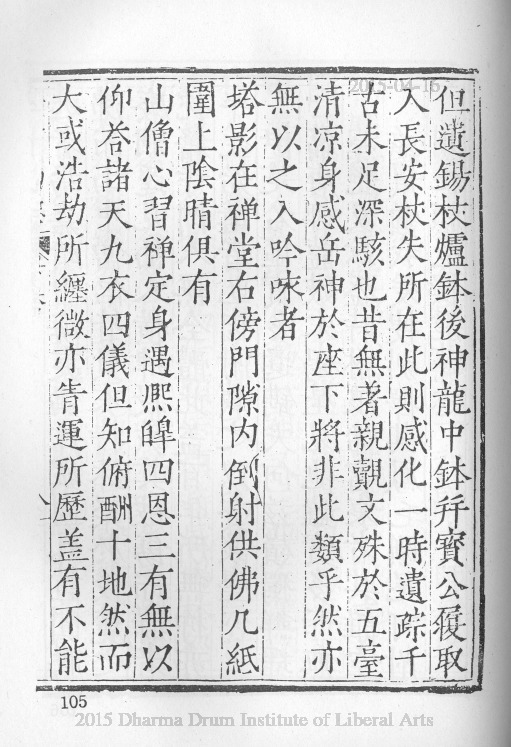 但遺錫杖爐鉢後神龍中鉢幷寶公履取
入長安杖失所在此則感化一時遺踪千
古未足深駭也昔無著親覿文殊於五臺
清凉身感岳神於座下將非此類乎然亦
無以之入吟咏者
塔影在禅堂右傍門隙内倒射供佛几紙
圍上陰晴俱有
山僧心習禅定身遇熈皥四恩三有無以
仰荅諸天九衣四儀但知俯酬十地然而
大或浩劫所纏微亦青運所歷盖有不能
105
2015-04-16
2015 Dharma Drum Institute of Liberal Arts